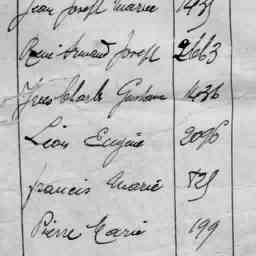 Jean Joseph Marie 1435
René Armand Joseph 2663
Yves Charle Gustave 1436
Léon Eugène 2096
francis Marie 725
Pierre Marie 199